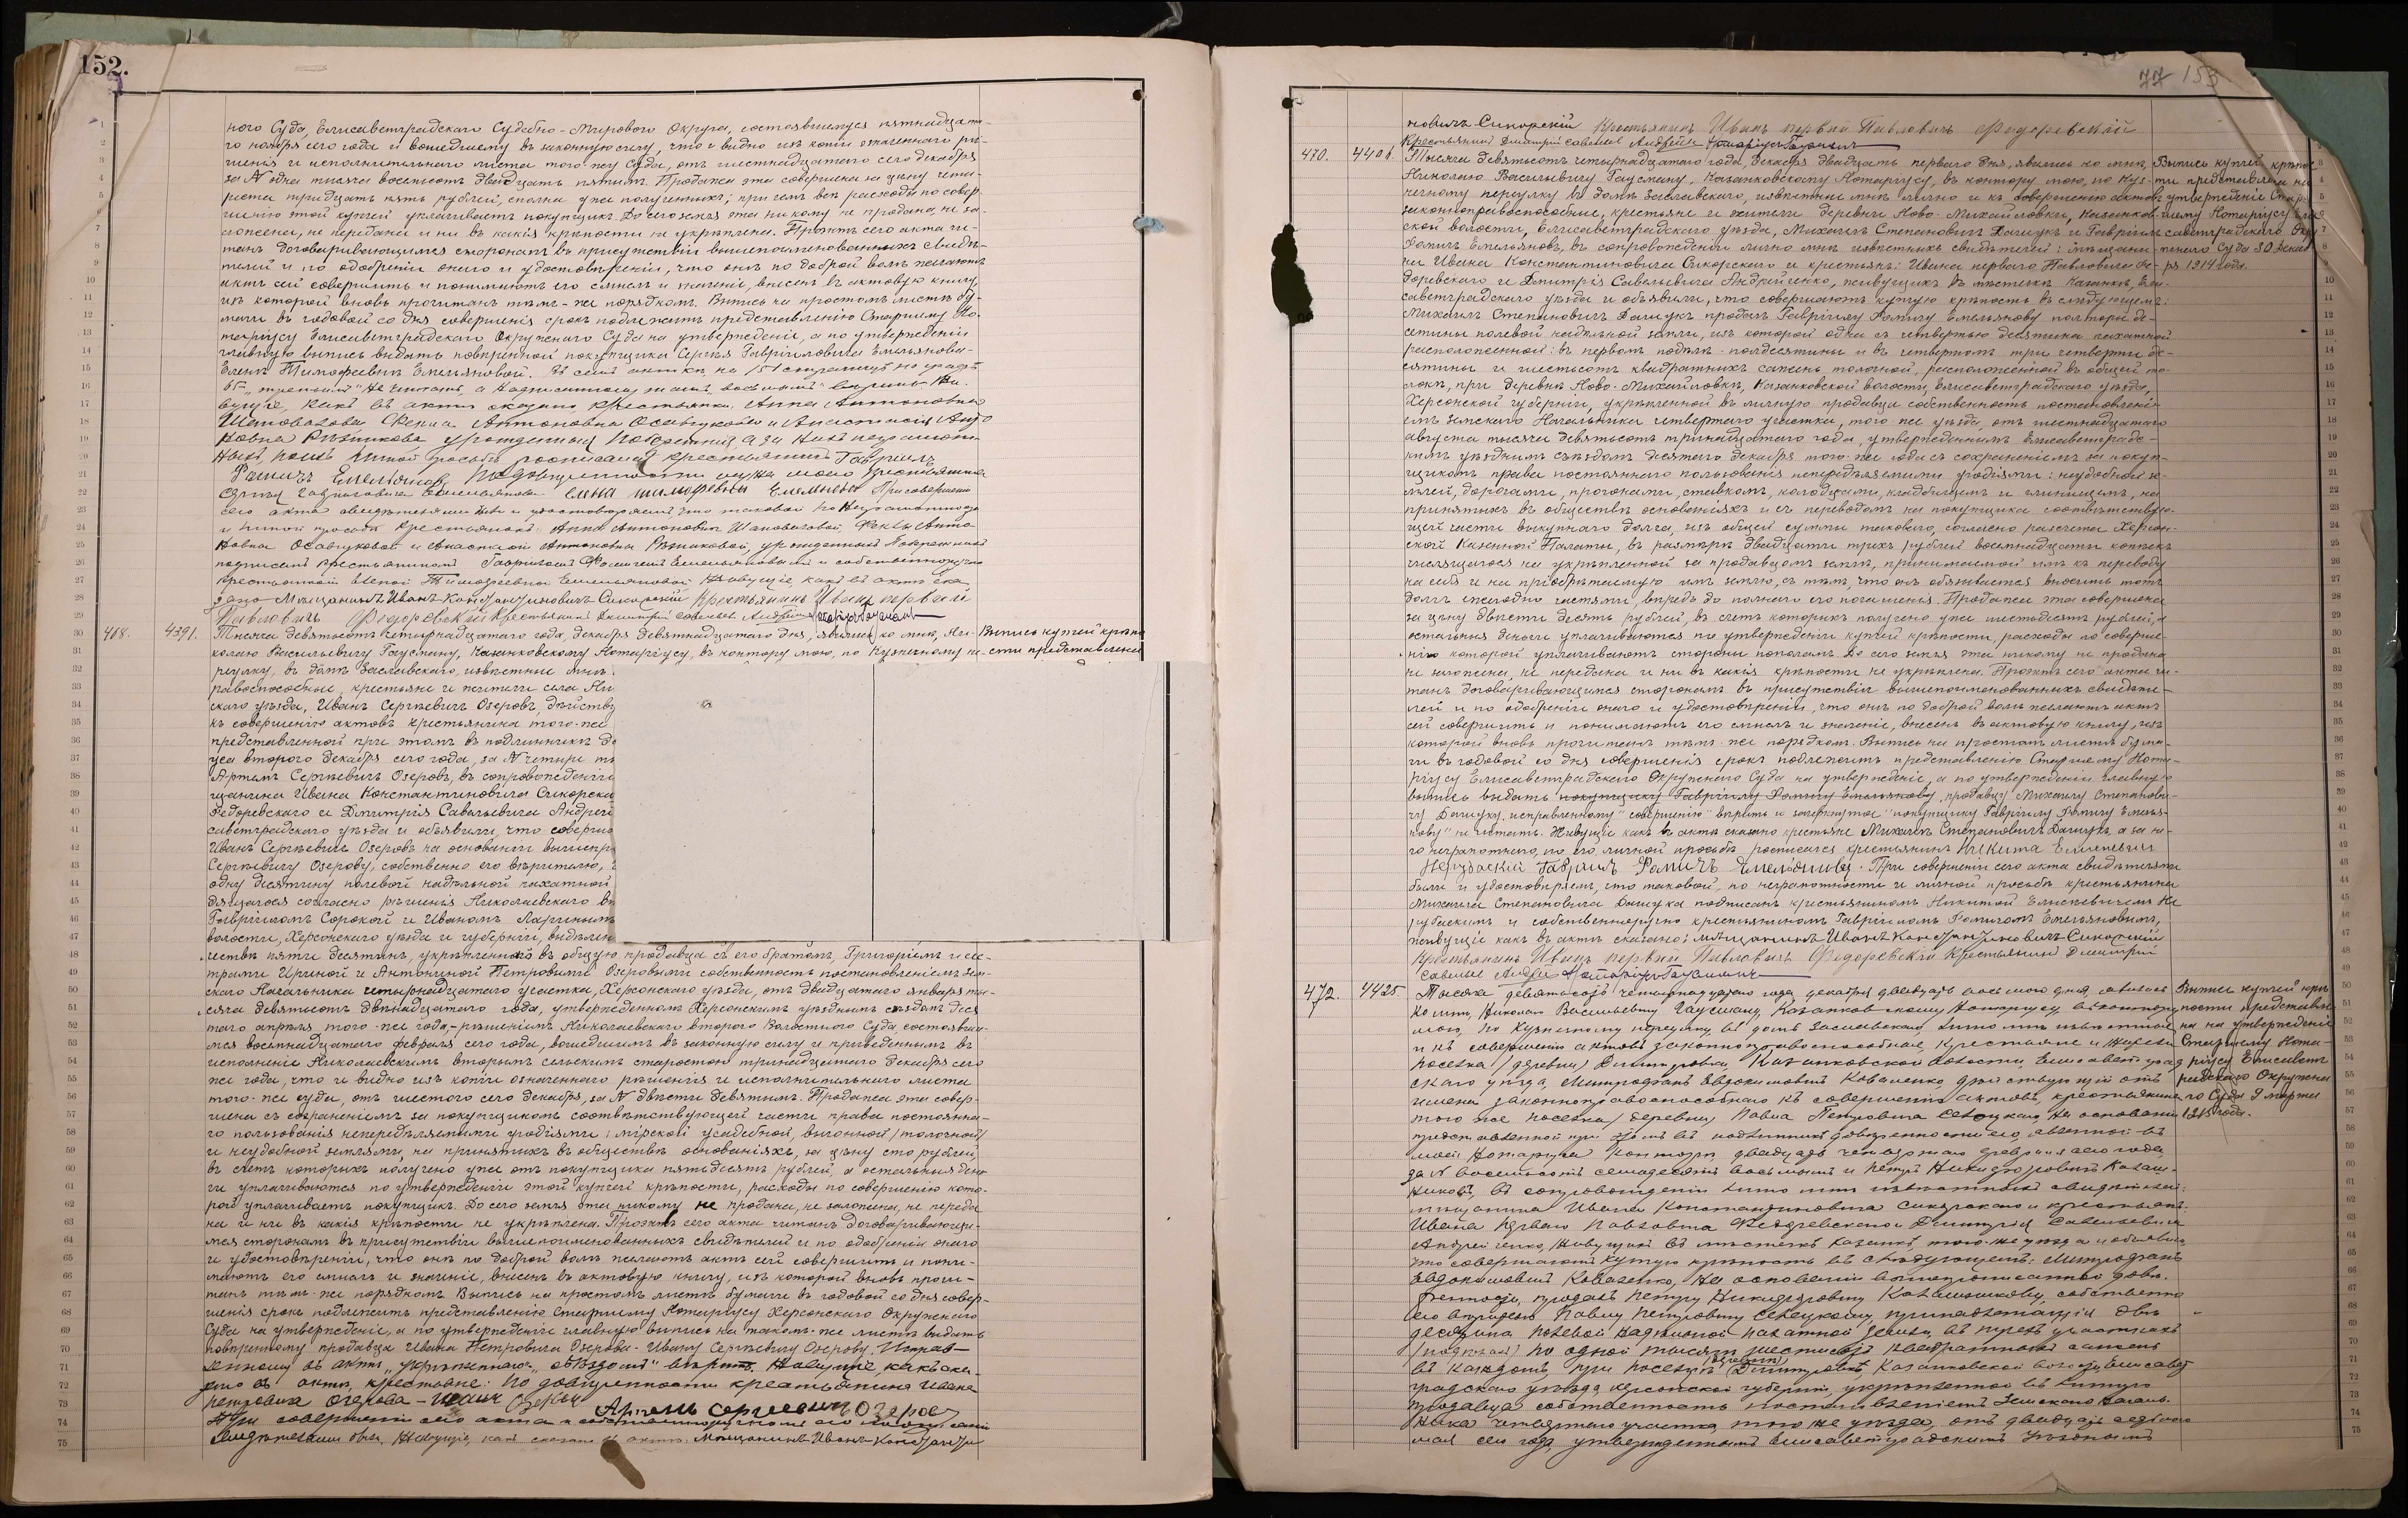 152.
наго Суда, Елисаветградскаго Судебно-Мирового Округа, состоявшемуся пятнадцата-
го ноября сего года и вошедшему въ законную силу, что и видно изъ копіи означеннаго рѣ-
шенія и исполнительнаго листа того-же Суда, отъ шестнадцатаго сего декабря
за N одна тысяча восемьсотъ двадцать пятымъ. Продажа эта совершена за цѣну четы-
реста тридцать пять рублей, сполна уже полученныхъ, при чемъ всѣ расходы по совер-
шенію этой купчей уплачиваетъ покупщикъ. До сего земля эта никому не продана, не за-
ложена, не передана и ни въ какія крѣпости не укрѣплена. Проэктъ сего акта чи-
танъ договаривающимся сторонамъ въ присутствіи вышепоименованныхъ свидѣ-
телей и по одобреніи онаго и удостовѣреніи, что онѣ по доброй волѣ желаютъ
актъ сей совершить и понимаютъ его смыслъ и значеніе, внесенъ въ актовую книгу,
изъ которой вновь прочитанъ тѣмъ-же порядкомъ. Выпись на простомъ листѣ бу-
маги въ годовой со дня совершенія срокъ подлежитъ представленію Старшему Но-
таріусу Елисаветградскаго Окружнаго Суда на утвержденіе, а по утвержденіи
главную выпись выдать повѣренной покупщика Сергѣя Гавріиловича Емельянова-
Еленѣ Тимофеевнѣ Емельяновой. Въ семъ актѣ, на 151 страницѣ
вущіе, какъ въ актѣ сказано крестьянки: Анна Антоновна
Шаповалова Фекла Антоновна Осавчукова и Анастасія Анто
новна Рѣзникова урожденныя Побережныя, а за нихъ неграмот-
ныхъ, по ихъ личной просьбѣ росписался крестьянинъ Гавріилъ
Фомичъ Емельяновъ. По довѣренности мужа моего крестьянина
Сергѣя Гавриловича Емельянова Елена Тимофеевна Емельянова При совершеніи
сего акта свидѣтелями были и удостовѣряемъ что таковой по неграмотности
и личной просьбѣ крестьянокъ: Анны Антоновны Шаповаловой, Феклы Анто-
новны Осавчуковой и Анастасіи Антоновны Рѣзниковой, урожденныхъ Побережныхъ
подписанъ крестьяниномъ Гавріиломъ Фомичемъ Емельяновымъ и собственноручно
крестьянкой Еленой Тимофеевной Емельяновой Живущіе, какъ въ актѣ ска
зано Мѣщанинъ Иванъ Константиновичъ Сикорскій Крестьянинъ Иванъ первый
Павловичъ Федоревскій Крестьянинъ Дмитрій Савельев Андрейченко Нотаріусъ Гаусманъ
468. 4391. Тысяча девятьсотъ четырнадцатаго года, декабря девятнадцатаго дня, явились ко мнѣ, Ни-
колаю Васильевичу Гаусману, Казанковскому Нотаріусу, въ контору мою, по Кузнечному пе-
Выпись купчей крѣпо
сти представлена
реулку, въ домѣ Заславскаго, извѣстные мнѣ
равоспособные, крестьяне и жители села Ни
скаго уѣзда, Иванъ Сергѣевичъ Озеровъ, дѣйству
къ совершенію актовъ крестьянина того-же
представленной при этомъ въ подлинникѣ до
уса второго декабря сего года, за N четыре ты
Артемъ Сергѣевичъ Озеровъ, въ сопровожденіи
щанина Ивана Константиновича Сикорска
Федоревскаго и Дмитрія Савельевича Андрей
саветградскаго уѣзда и объявили, что соверша
Иванъ Сергѣевичъ Озеровъ на основаніи вышепр
Сергѣевичу Озерову, собственно его вѣрителю,
одну десятину полевой надѣльной пахатной
дящагося согласно рѣшенія Николаевскаго в
Гавріиломъ Сорокой и Иваномъ Ларинымъ
волости, Херсонскаго уѣзда и губерніи, выдѣлен
честь пяти десятинъ, укрѣпленной въ общую продавца съ его братомъ, Григоріемъ и се-
трами Ириной и Антониной Петровыми Озеровыми собственность постановленіемъ Зем-
скаго Начальника четырнадцатаго участка, Херсонскаго уѣзда, отъ двадцатаго января ты-
сяча девятьсотъ двѣнадцатаго года, утвержденномъ Херсонскимъ уѣзднымъ съѣздомъ деся
таго апрѣля того-же года,-рѣшеніемъ Николаевскаго второго Волостного Суда, состоявши-
мся восемнадцатаго февраля сего года, вошедшимъ въ законную силу и приведеннымъ въ
исполненіе Николаевскимъ вторымъ сельскимъ старостою тринадцатаго декабря сего
же года, что и видно изъ копіи означеннаго рѣшенія и исполнительнаго листа
того-же суда, отъ шестого сего декабря, за N двѣсти девятымъ. Продажа эта совер-
шена съ сохраненіемъ за покупщикомъ соотвѣтствующей части права постоянна-
го пользованія непередѣляемыми угодіями: мірской усадебной, выгонной /толочной/
и неудобной землями, на принятыхъ въ обществѣ основаніяхъ, за цѣну сто рублей,
въ счетъ которыхъ получено уже отъ покупщика пятьдесятъ рублей, а остальныя день
ги уплачиваются по утвержденіи этой купчей крѣпости, расходы по совершенію кото-
рой уплачиваетъ покупщикъ. До сего земля эта никому не продана, не заложена, не переда
на и ни въ какія крѣпости не укрѣплена. Проэктъ сего акта читанъ договаривающи-
мся сторонамъ въ присутствіи вышепоименованныхъ свидѣтелей и по одобреніи онаго
и удостовѣреніи, что онѣ по доброй волѣ желаютъ актъ сей совершить и пони-
маютъ его смыслъ и значеніе, внесенъ въ актовую книгу, изъ которой вновь прочи-
танъ тѣмъ-же порядкомъ. Выпись на простомъ листѣ бумаги въ годовой со дня совер-
шенія срокъ подлежитъ представленію Старшему Нотаріусу Херсонскаго Окружнаго
Суда на утвержденіе, а по утвержденіи главную выпись на такомъ-же листѣ выдать
повѣренному продавца Ивана Петровича Озерова- Ивану Сергѣевичу Озерову. Исправ-
ленному въ актѣ „укрѣпленной“, „съѣздомъ“ вѣрить. Живущіе, какъ ска-
зано въ актѣ, крестьяне: По довѣренности крестьянина Ивана
Петровича Озерова - Иванъ Озеровъ Артемъ Сергеевичъ Озеров
При совершеніи сего акта и собственноручномъ его подписаніи
свидѣтелями были, Живущіе, какъ сказано въ актѣ: Мѣщанинъ Иванъ Константи
77 153
новичъ Сикорскій Крестьянинъ Иванъ первый Павловичъ Федоревскій
Крестьянинъ Дмитрій Савельев Андрейченко Нотаріусъ Гаусманъ
470. 4401. Тысяча девятьсотъ четырнадцатаго года, декабря двадцать перваго дня, явились ко мнѣ,
Николаю Васильевичу Гаусману, Казанковскому Нотаріусу, въ контору мою, по Куз-
нечному переулку въ домѣ Заславскаго, извѣстные мнѣ лично и къ совершенію актовъ
законноправоспособные, крестьяне и жители деревни Ново-Михайловки, Казанков-
ской волости, Елисаветградскаго уѣзда, Михаилъ Степановичъ Дашукъ и Гавріилъ
Фомичъ Емельяновъ, въ сопровожденіи лично мнѣ извѣстныхъ свидѣтелей: мѣщани-
на Ивана Константиновича Сикорскаго и крестьянъ: Ивана перваго Павловича Фе-
Выпись купчей крѣпос
ти представлена на
утвержденіе Стар-
шему Нотаріусу Ели
саветградскаго Окру
жнаго Суда 30 декаб
ря 1914 года.
доревскаго и Дмитрія Савельевича Андрейченко, живущихъ въ мѣстечкѣ Казанкѣ, Ели-
саветградскаго уѣзда и объявили, что совершаютъ купчую крѣпость въ слѣдующемъ:
Михаилъ Степановичъ Дашукъ продалъ Гавріилу Фомичу Емельянову полторы де-
сятины полевой надѣльной земли, изъ которой одна съ четвертью десятина пахатной
расположенной: въ первомъ подѣлѣ-полдесятины и въ четвертомъ три четверти де-
сятины и шестьсотъ квадратныхъ саженъ толочной, расположенной въ общей то-
локѣ, при деревнѣ Ново-Михайловкѣ, Казанковской волости, Елисаветградскаго уѣзда,
Херсонской губерніи, укрѣпленной въ личную продавца собственность постановлені-
емъ Земскаго Начальника четвертаго участка, того-же уѣзда, отъ шестнадцатаго
августа тысяча девятьсотъ тринадцатаго года, утвержденнымъ Елисаветградс-
кимъ уѣзднымъ съѣздомъ десятаго декабря того-же года съ сохраненіемъ за покуп-
щикомъ права постояннаго пользованія непередѣляемыми угодіями: неудобной зе-
млей, дорогами, прогонами, ставкомъ, колодцами, кладбищемъ и глинищемъ, на
принятыхъ въ обществѣ основаніяхъ и съ переводомъ на покупщика соотвѣтствую-
щей части выкупнаго долга, изъ общей суммы таковаго, согласно расчета Херсон-
ской Казенной Палаты, въ размѣрѣ двадцати трехъ рублей восемнадцати копѣекъ
числящагося на укрѣпленной за продавцомъ землѣ, принимаемой имъ къ переводу
на себя и на пріобрѣтаемую имъ землю, съ тѣмъ, что онъ обязывается вносить тотъ
долгъ ежегодно частями, впредь до полнаго его погашенія. Продажа эта совершена
за цѣну двѣсти десять рублей, въ счетъ которыхъ получено уже шестьдесятъ рублей, а
остальныя деньги уплачиваются по утвержденіи купчей крѣпости, расходы по соверше-
нію которой уплачиваютъ стороны пополамъ. До сего земля эта никому не продана,
не заложена, не передана и ни въ какія крѣпости не укрѣплена. Проэктъ сего акта чи-
танъ договаривающимся сторонамъ въ присутствіи вышепоименованныхъ свидѣте-
лей и по одобреніи онаго и удостовѣреніи, что онѣ по доброй волѣ желаютъ актъ
сей совершить и понимаютъ его смыслъ и значеніе, внесенъ въ актовую книгу, изъ
которой вновь прочитанъ тѣмъ-же порядкомъ. Выпись на простомъ листѣ бума-
ги въ годовой со дня совершенія срокъ подлежитъ представленію Старшему Нота-
ріусу Елисаветградскаго Окружнаго Суда на утвержденіе, а по утвержденіи главную
выпись выдать покупщику Гавріилу Фомичу Емельянову „продавцу Михаилу Степанови-
чу Дашуку, исправленному „совершенію“ вѣрить и зачеркнутое „покупщику Гавріилу Фомичу Емель-
янову“ не читать. Живущіе какъ въ актѣ сказано крестьяне Михаилъ Степановичъ Дашукъ, а за не-
го неграмотнаго, по его личной просьбѣ расписался крестьянинъ Никита Елисеевичъ
Нерубаскій Гавриилъ Фомичъ Емельяновъ. При совершеніи сего акта свидѣтелями
были и удостовѣряемъ, что таковой, по неграмотности и личной просьбѣ крестьянина
Михаила Степановича Дашука подписанъ крестьяниномъ Никитой Елисеевичемъ Не
рубаскимъ и собственноручно крестьяниномъ Гавріиломъ Фомичемъ Емельяновымъ,
живущіе какъ въ актѣ сказано: мѣщанинъ Иванъ Константиновичъ Сикорскій
Крестьянинъ Иванъ первый Павловичъ Федоревскій Крестьянинъ Дмитрій
Савельев Андрейченко Нотаріусъ Гаусманъ
472. 4425 Тысяча девятьсотъ четырнадцатаго года, декабря двадцать восьмого дня, явились
ко мнѣ, Николаю Васильевичу Гаусману, Казанковскому Нотаріусу, въ контору
мою, по Кузнечному переулку, въ домѣ Заславскаго, лично мнѣ извѣстные
и къ совершенію актовъ законноправоспособные, крестьяне и жители
поселка /деревни/ Дмитровки, Казанковской волости, Елисаветград
скаго уѣзда, Митрофанъ Евдокимовичъ Коваленко, дѣйствующій отъ
имени законноправоспособнаго къ совершенію актовъ, крестьянина
того же поселка /деревни/ Павла Петровича Севецкаго, на основаніи
Выпись купчей крѣ
пости представле
на на утвержденіе
Старшему Нота-
ріусу Елисавет
градскаго Окружна
го Суда 9 марта
1915 года.
представленной при этомъ въ подлинникѣ довѣренности его, явленной въ
моей Нотаріуса конторѣ, двадцать четвертаго февраля сего года,
за N восемьсотъ семьдесятъ восьмымъ и Петръ Никифоровичъ Калаш-
никовъ, въ сопровожденіи лично мнѣ извѣстныхъ свидѣтелей:
мѣщанина Ивана Константиновича Сикорскаго и крестьянъ:
Ивана перваго Павловича Федоревскаго и Дмитрія Савельевича
Андрейченко, живущихъ въ мѣстечкѣ Казанкѣ, того-же уѣзда и объявили,
что совершаютъ купчую крѣпость въ слѣдующемъ: Митрофанъ
Евдокимовичъ Коваленко, на основаніи вышеописанной довѣ-
ренности, продалъ Петру Никифоровичу Калашникову, собственно
его вѣрителю Павлу Петровичу Севецкому, принадлежащія двѣ
десятины полевой надѣльной пахатной земли, въ трехъ участкахъ
/подѣлахъ/ по одной тысячѣ шестисотъ квадратныхъ саженъ
въ каждомъ, при поселкѣ /деревнѣ/ Дмитровкѣ, Казанковской волости, Елисавет
градскаго уѣзда, Херсонской губерніи, укрѣпленной въ личную
продавца собственность постановленіемъ Земскаго Началь-
ника четвертаго участка, того же уѣзда, отъ двадцать седьмого
мая сего года, утвержденнымъ Елисаветградскимъ Уѣзднымъ